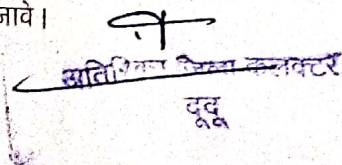 जावे।
अतिरिक्त जिला कलक्टर
दूदू